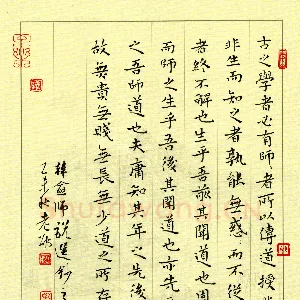 古之學者必有師者所以傳道授
非生而知之者孰能無惑而不從
者終不解也生乎吾前其聞道
而師之生乎吾後其聞道也亦先
之吾師道也夫庸知其年之先後
故無貴無賤無長無少道之所存
韓愈師說選鈔